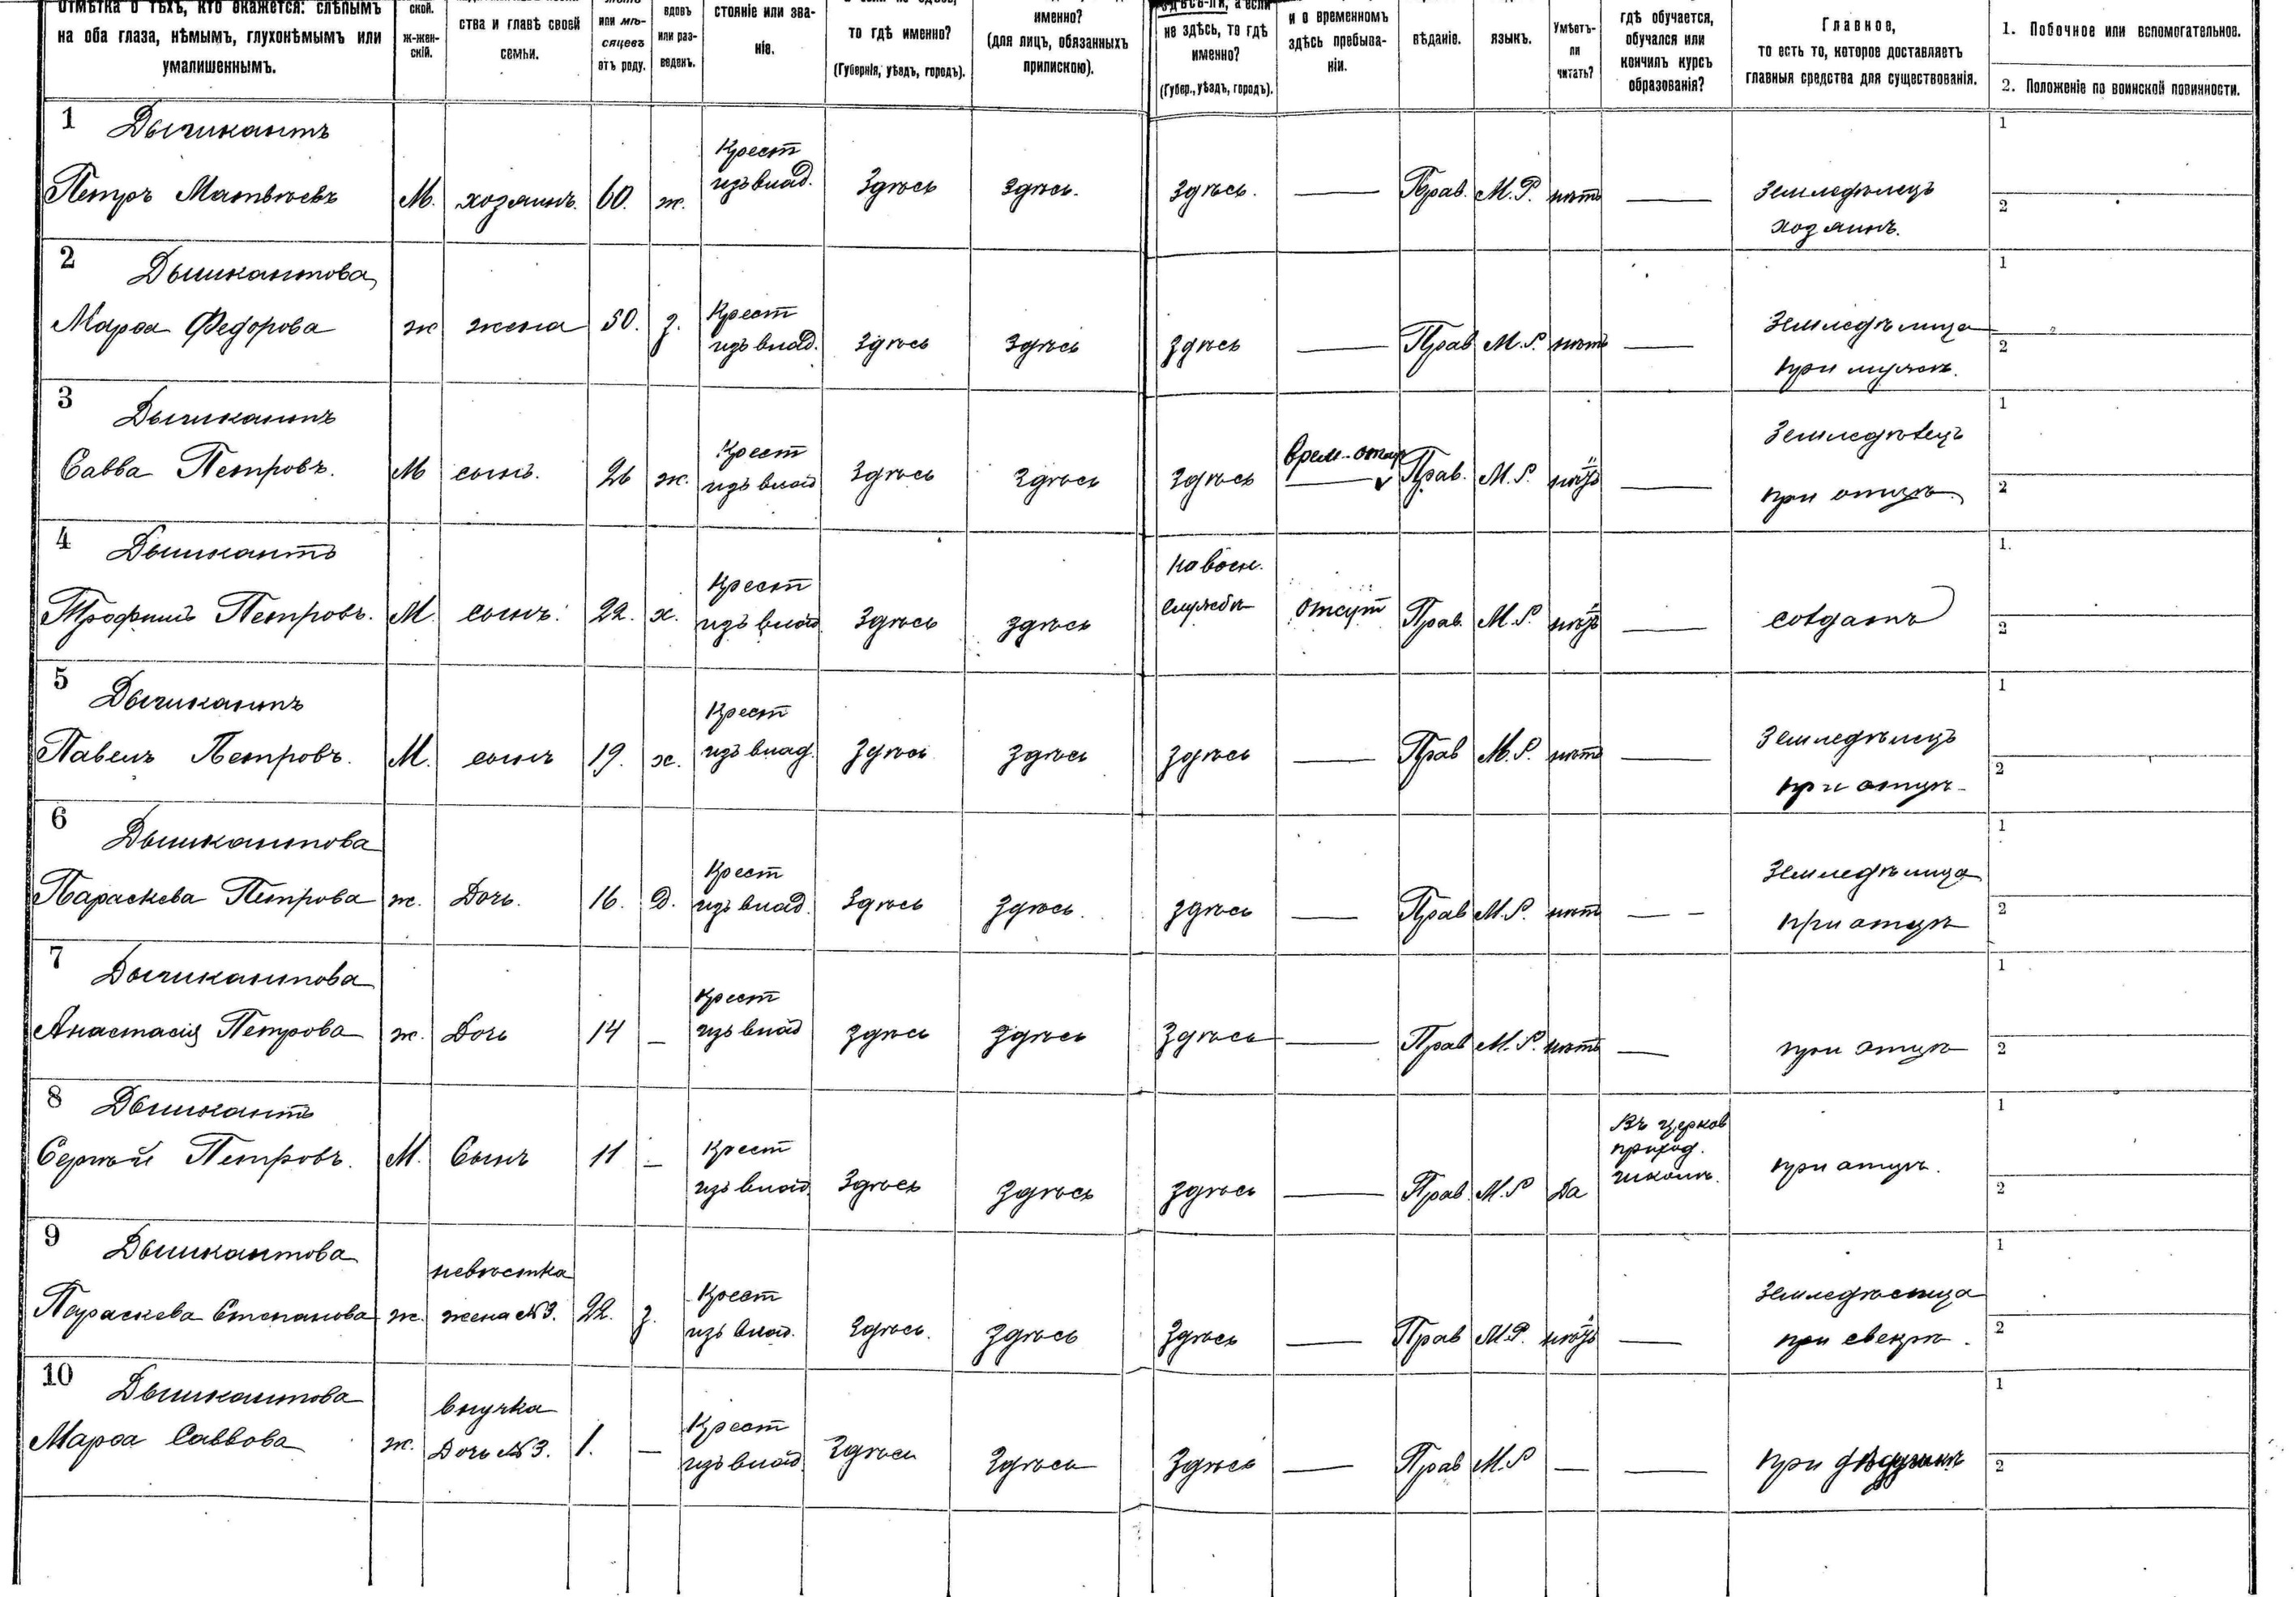 отмѣтка о тѣхъ, кто окажется: слѣпымъ
на оба глаза, нѣмымъ, глухонѣмымъ или
умалишеннымъ.
ской.
ж-жен-
скій.
ства и главѣ своей
семьи.
или мѣ-
сяцевъ
отъ роду.
вдовъ
или раз-
веденъ.
стояніе или зва-
ніе.
то гдѣ именно?
(Губернія, уѣздъ, городъ).
именно?
(для лицъ, обязанныхъ
припискою).
здѣсь-ли, а если
не здѣсь, то гдѣ
именно?
(Губер., уѣздъ, городъ).
и о временномъ
здѣсь пребыва-
ніи.
вѣданіе.
языкъ.
Умѣетъ-
ли
читать?
гдѣ обучается,
обучался или
кончилъ курсъ
образованія?
Главное,
то есть то, которое доставляетъ
главныя средства для существованія.
1. Побочное или вспомогательное.
2. Положеніе по воинской повинности.
1 Дышкантъ
Петръ Матвѣевъ М. хозяинъ. 60. ж. Крест изъ влад. Здѣсь Здѣсь. Здѣсь. — Прав. М.Р. нѣтъ — Земледѣлецъ хозяинъ. 1 2
2 Дышкантова
Марѳа Федорова ж жена 50. з. Крест изъ влад. Здѣсь Здѣсь Здѣсь — Прав М.Р. нѣтъ — Земледѣлица при мужѣ. 1 2
3 Дышкантъ
Савва Петровъ. М сынъ. 26 ж. Крест изъ влад Здѣсь Здѣсь Здѣсь врем-отсут Прав. М.Р. нѣтъ — Земледѣлецъ при отцѣ. 1 2
4 Дышкантъ
Трофимъ Петровъ. М. сынъ. 22. х. Крест изъ влад Здѣсь Здѣсь на воен. службѣ отсут Прав. М.Р. нѣтъ — солдатъ 1. 2
5 Дышкантъ
Павелъ Петровъ. М. сынъ 19. х. Крест изъ влад. Здѣсь Здѣсь Здѣсь — Прав М.Р. нѣтъ — Земледѣлецъ при отцѣ 1 2
6 Дышкантова
Параскева Петрова ж. Дочь. 16. Д. Крест изъ влад. Здѣсь Здѣсь. Здѣсь — Прав М.Р. нѣтъ — Земледѣлица при отцѣ 1 2
7 Дышкантова
Анастасія Петрова ж. Дочь 14 — Крест изъ влад Здѣсь Здѣсь Здѣсь — Прав М.Р. нѣтъ — при отцѣ 1 2
8 Дышкантъ
Сергѣй Петровъ. М. Сынъ 11 — Крест изъ влад. Здѣсь Здѣсь Здѣсь — Прав. М.Р Да Въ церков приход. школѣ. при отцѣ. 1 2
9 Дышкантова
Параскева Степанова ж. невѣстка жена №3. 22. з. Крест изъ влад. Здѣсь. Здѣсь Здѣсь — Прав М.Р. нѣтъ — Земледѣлица при свекрѣ. 1 2
10 Дышкантова
Марѳа Саввова ж. внучка Дочь №3. 1. — Крест изъ влад. Здѣсь Здѣсь Здѣсь — Прав М.Р — — при дѣдушкѣ 1 2